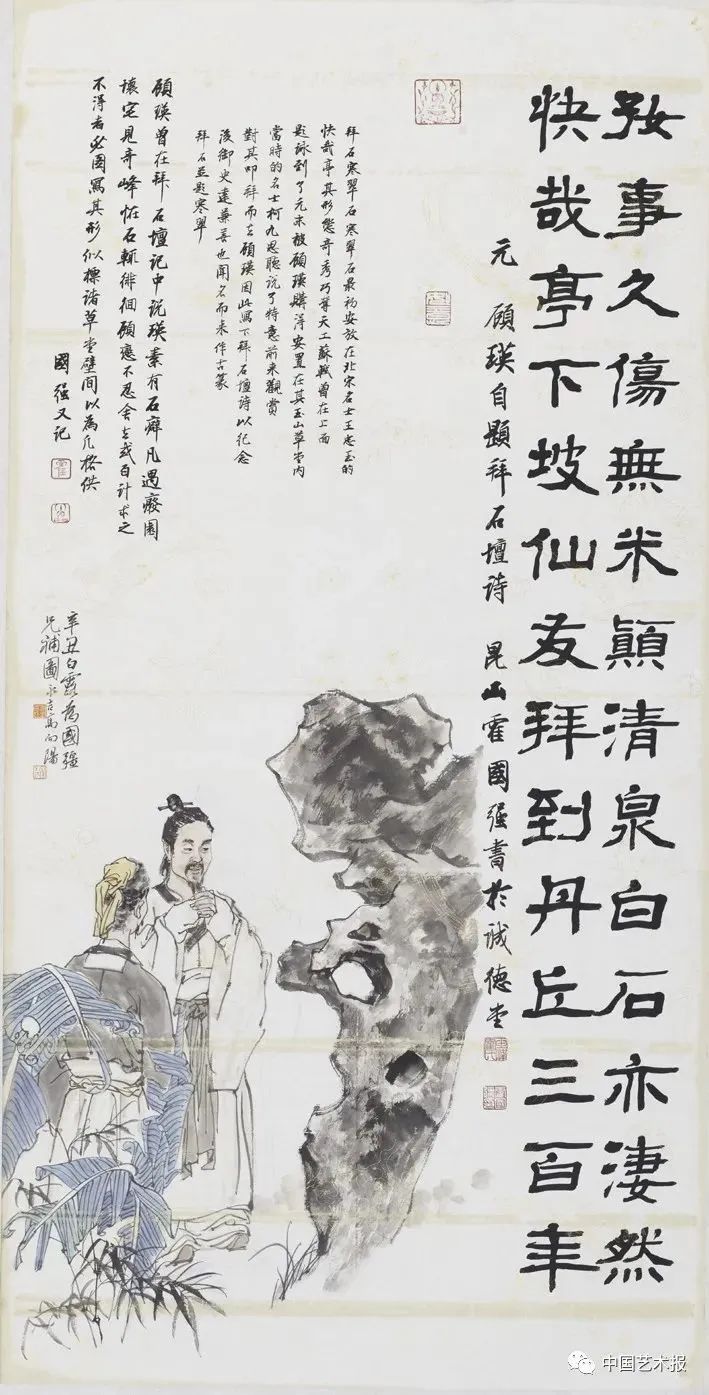 好事久傷無米顛清泉白石亦淒然
快哉亭下坡仙友拜到丹丘三百年
元 顧瑛自題拜石壇詩 昆山霍國强書於誠德堂
拜石寒翠石寒翠石最初安放在北宋名士王忠玉的
快哉亭其形態奇秀巧奪天工蘇軾曾在上面
題詠到了元末被顧瑛購得安置在其玉山草堂內
當時的名士柯九思聽說了特意前來觀賞
對其叩拜而去顧瑛因此寫下拜石壇詩以紀念
後御史達兼善也聞名而來作古篆
拜石並題寒翠
顧瑛曾在拜石壇記中說瑛素有石癖凡遇廢園
壞宅見奇峰怪石輒徘徊顧戀不忍舍去或百計求之
不得者必圖寫其形似標諸草堂壁間以為几格供
國强又記
辛丑白露為國強
兄補圖 高向陽
中国艺术报